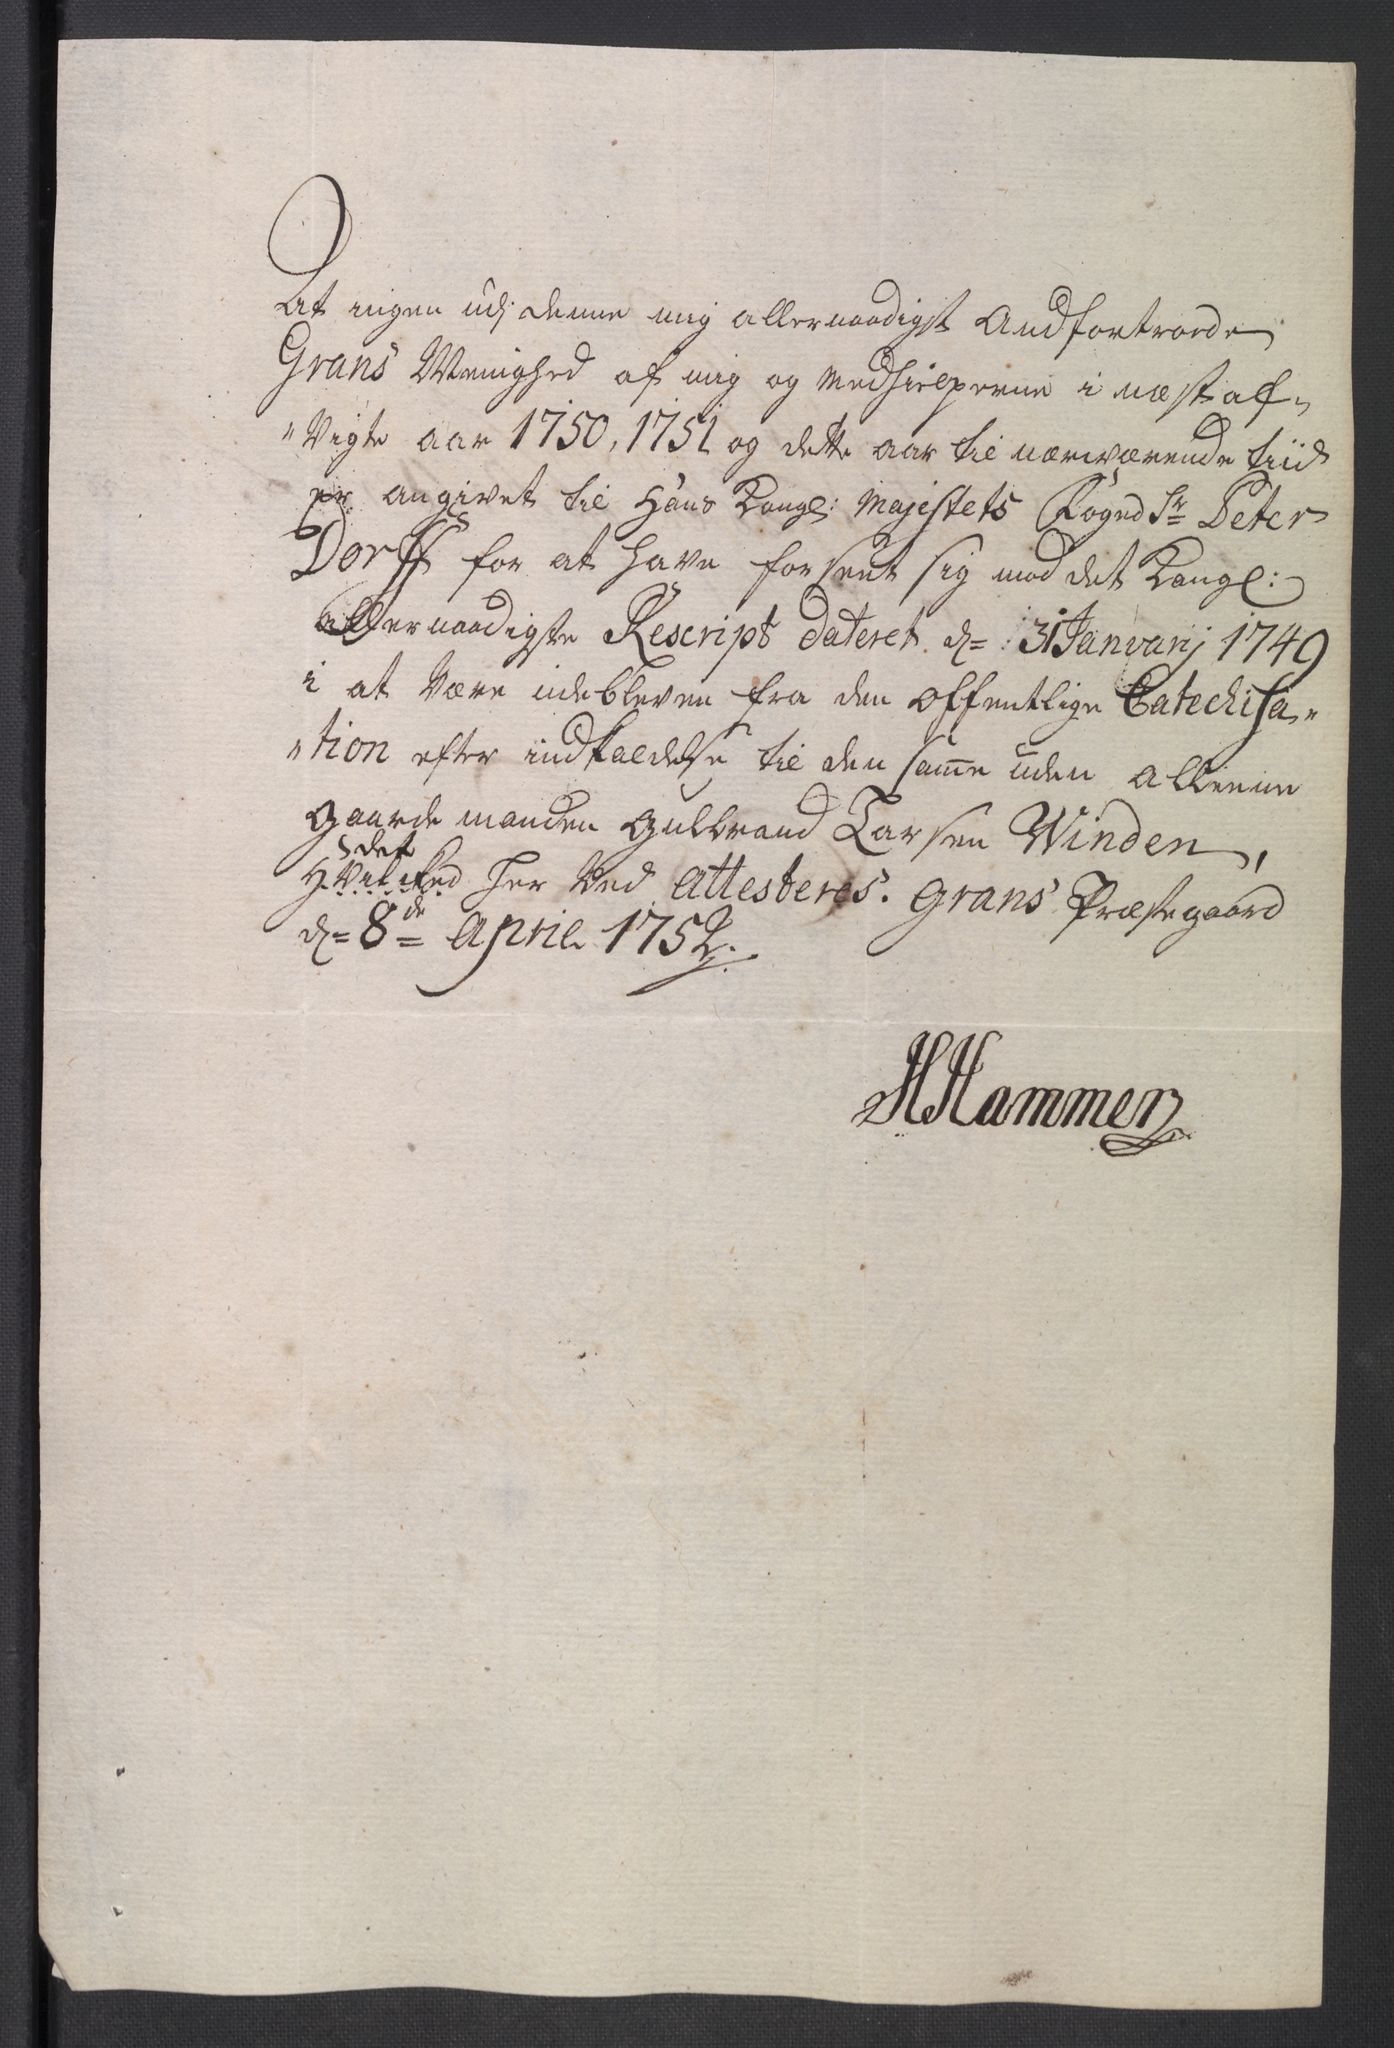 At ingen udj denne mig allernaadigst Andfortroede
Grans Menighed af mig og Medhielperne i næst af-
"vigte aar 1750, 1751 og dette aar til nærværende tiid
er angivet til Hans Kongl: Majestets Foged Sr= Peter
Dorff for at have forseet sig mod det Kongl:
allernaadigste Rescript dateret d= 31 Januarij 1749
i at være udebleven fra den offentlige Catechisa-
"tion efter indkaldelse til den samme uden alleene
gaardemanden Gulbrand Larsen Winden,
det
her ved attesteres. Grans Præstegaard
d= 8de= April 1752.
HHammer